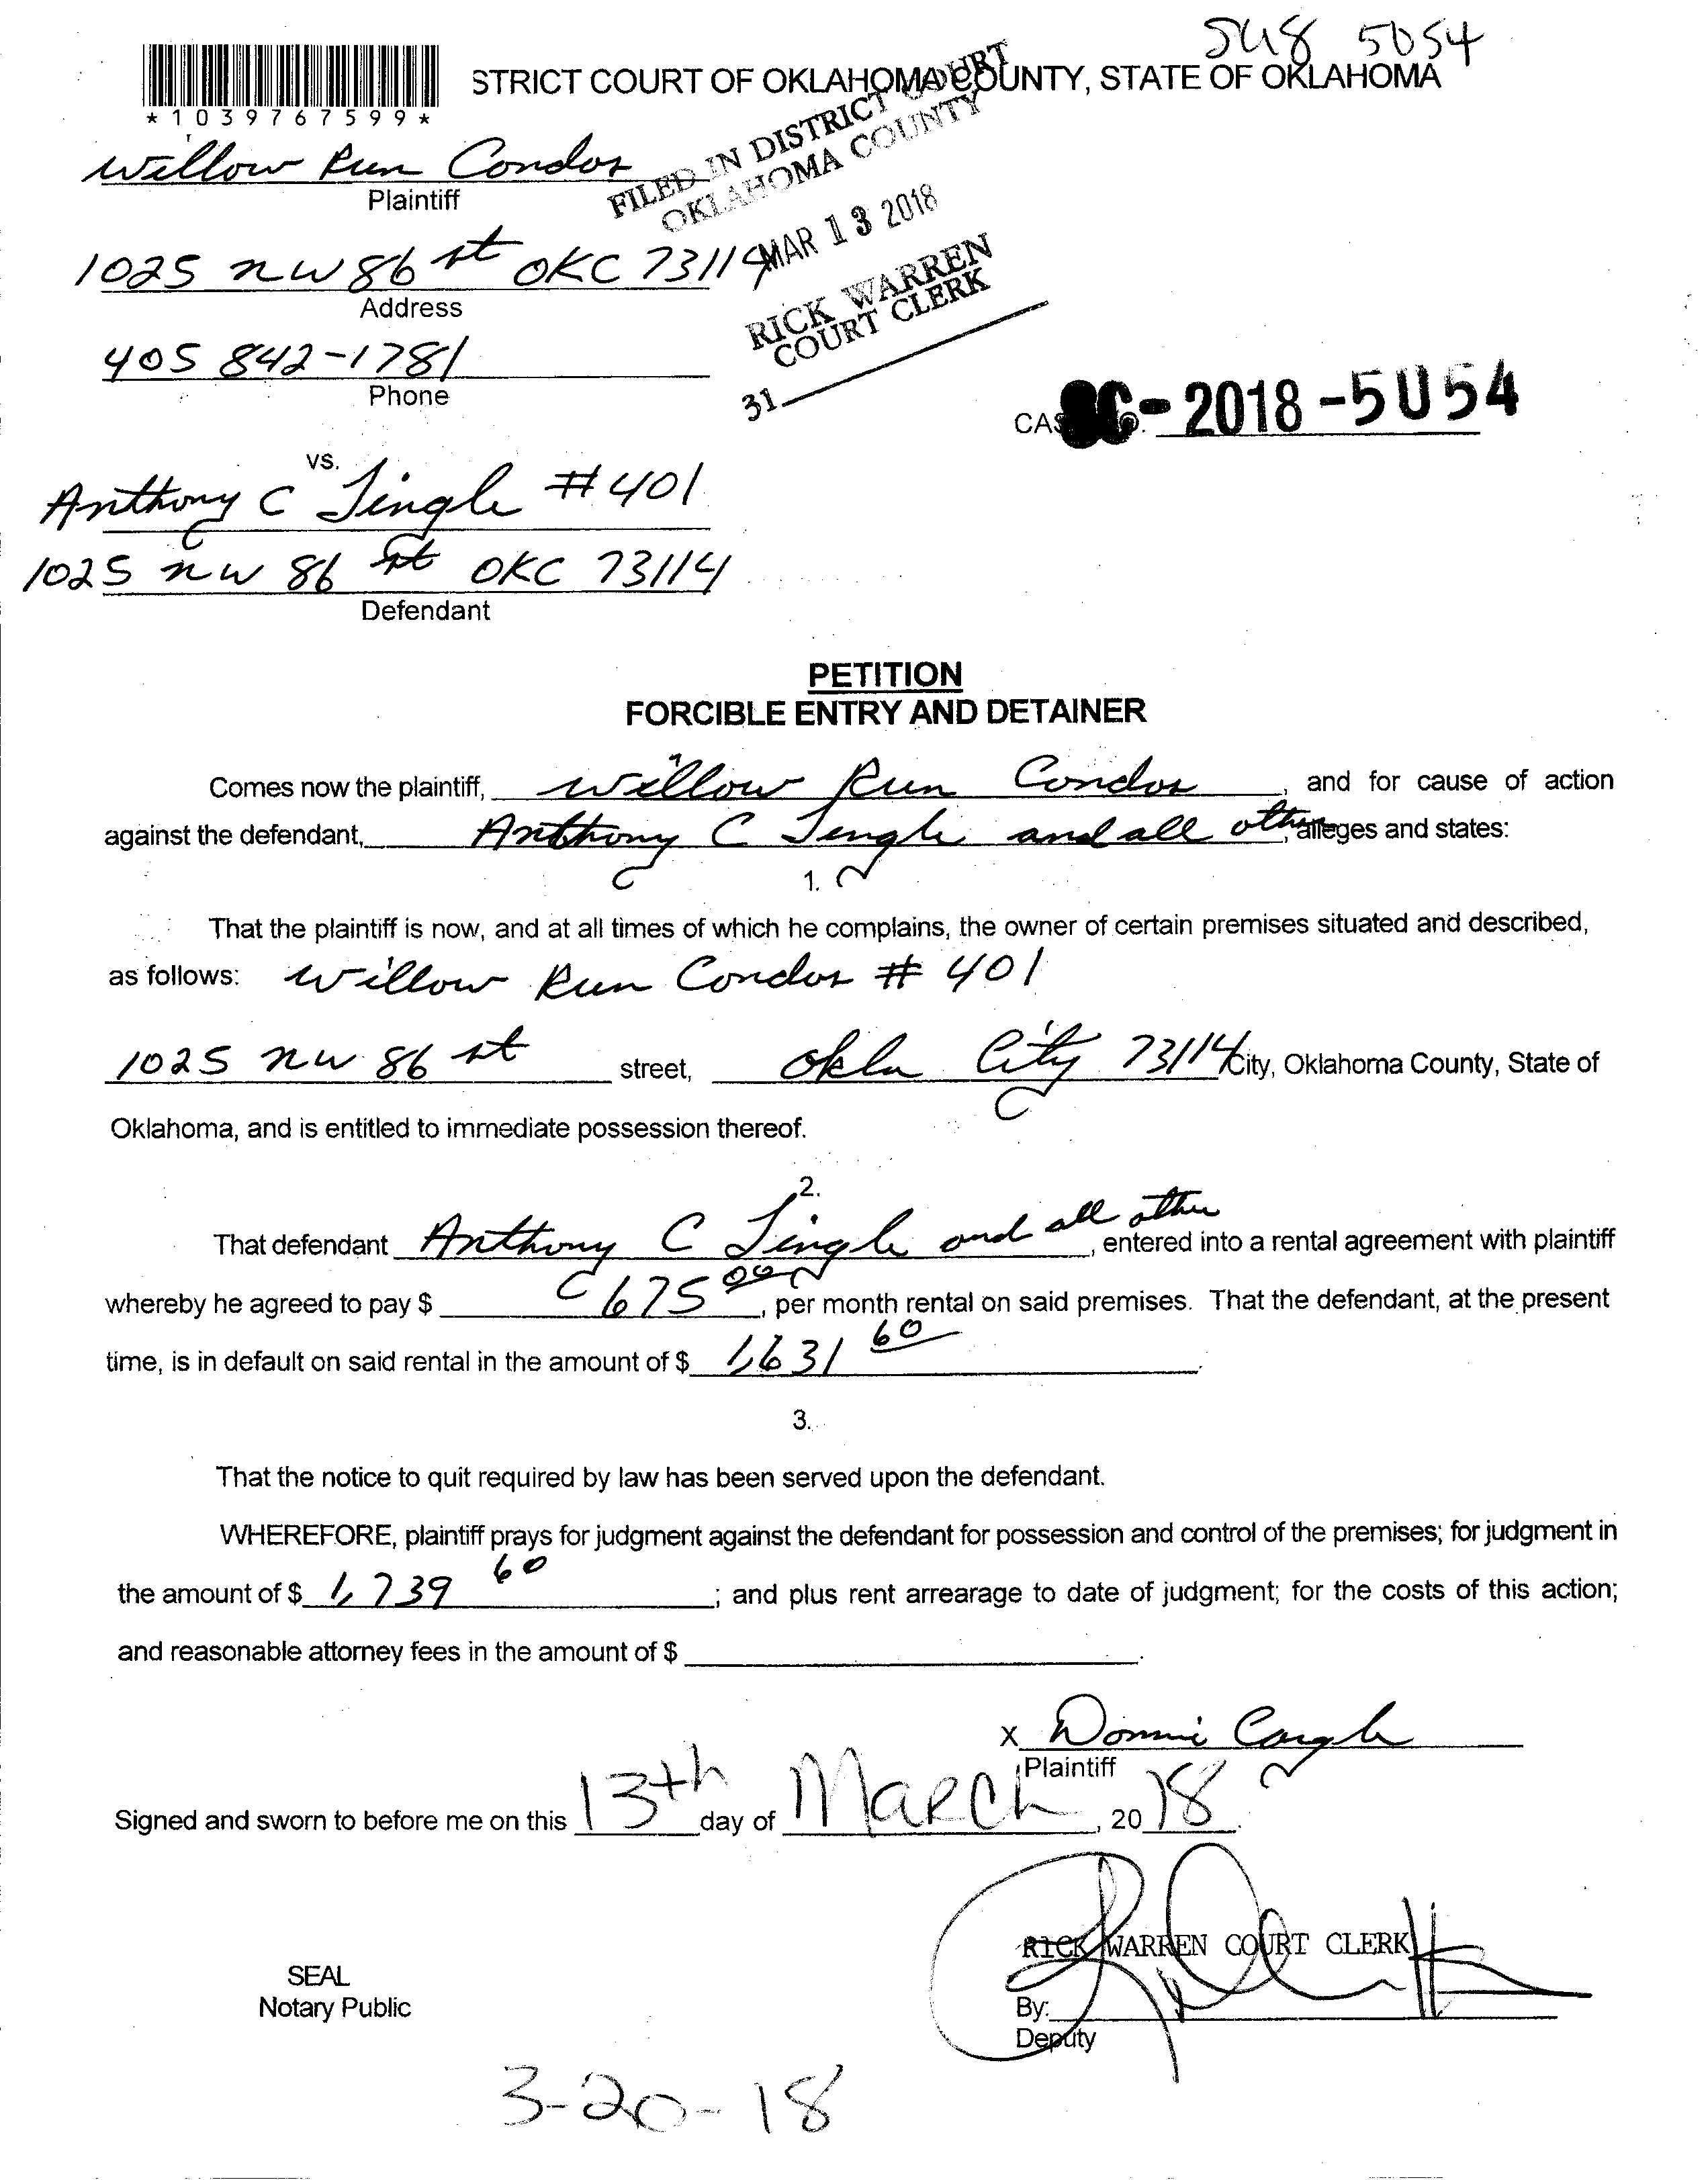 5054
STRICT COURT OF OKLAHOMA COUNTY, STATE OF OKLAHOMA
*1039767599*
FILED IN DISTRICT COURT
OKLAHOMA COUNTY
MAR 13 2018
RICK WARREN
COURT CLERK
31
Willow Run Condos
Plaintiff
1025 NW 86 st OKC 73114
Address
405 842-1781
Phone
CAS SC-2018-5054
vs.
Anthony C Lingle #401
1025 NW 86 st OKC 73114
Defendant
PETITION
FORCIBLE ENTRY AND DETAINER
Comes now the plaintiff, Willow Run Condos, and for cause of action
against the defendant, Anthony C Lingle and all other, alleges and states:
1.
That the plaintiff is now, and at all times of which he complains, the owner of certain premises situated and described,
as follows: Willow Run Condos # 401
1025 NW 86 st street, Okla City 73114 City, Oklahoma County, State of
Oklahoma, and is entitled to immediate possession thereof.
2.
That defendant Anthony C Lingle and all other, entered into a rental agreement with plaintiff
whereby he agreed to pay $ 675 00, per month rental on said premises. That the defendant, at the present
time, is in default on said rental in the amount of $ 1,631 60.
3.
That the notice to quit required by law has been served upon the defendant.
WHEREFORE, plaintiff prays for judgment against the defendant for possession and control of the premises; for judgment in
the amount of $ 1,739 60; and plus rent arrearage to date of judgment; for the costs of this action;
and reasonable attorney fees in the amount of $
X Donnie Cargle
Plaintiff
Signed and sworn to before me on this 13th day of March, 2018.
RICK WARREN COURT CLERK
SEAL
Notary Public
By:
Deputy
3-20-18